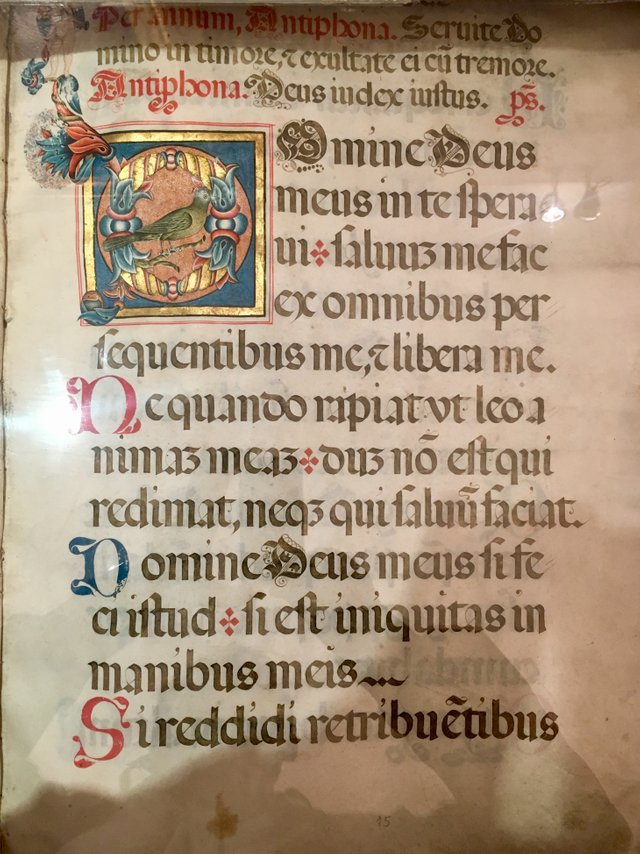 Per annum, Antiphona. Seruite Do
mino in timore, ⁊ exultate ei cū tremore.
Antiphona. Deus iudex iustus. ps.
Domine Deus
meus in te spera
ui saluuȝ me fac
ex omnibus per
sequentibus me, ⁊ libera me.
Ne quando rapiat vt leo a
nimaȝ meaȝ duȝ nō est qui
redimat, neqȝ qui saluū faciat.
Domine Deus meus si fe
ci istud si est iniquitas in
manibus meis
Si reddidi retribuētibus
15